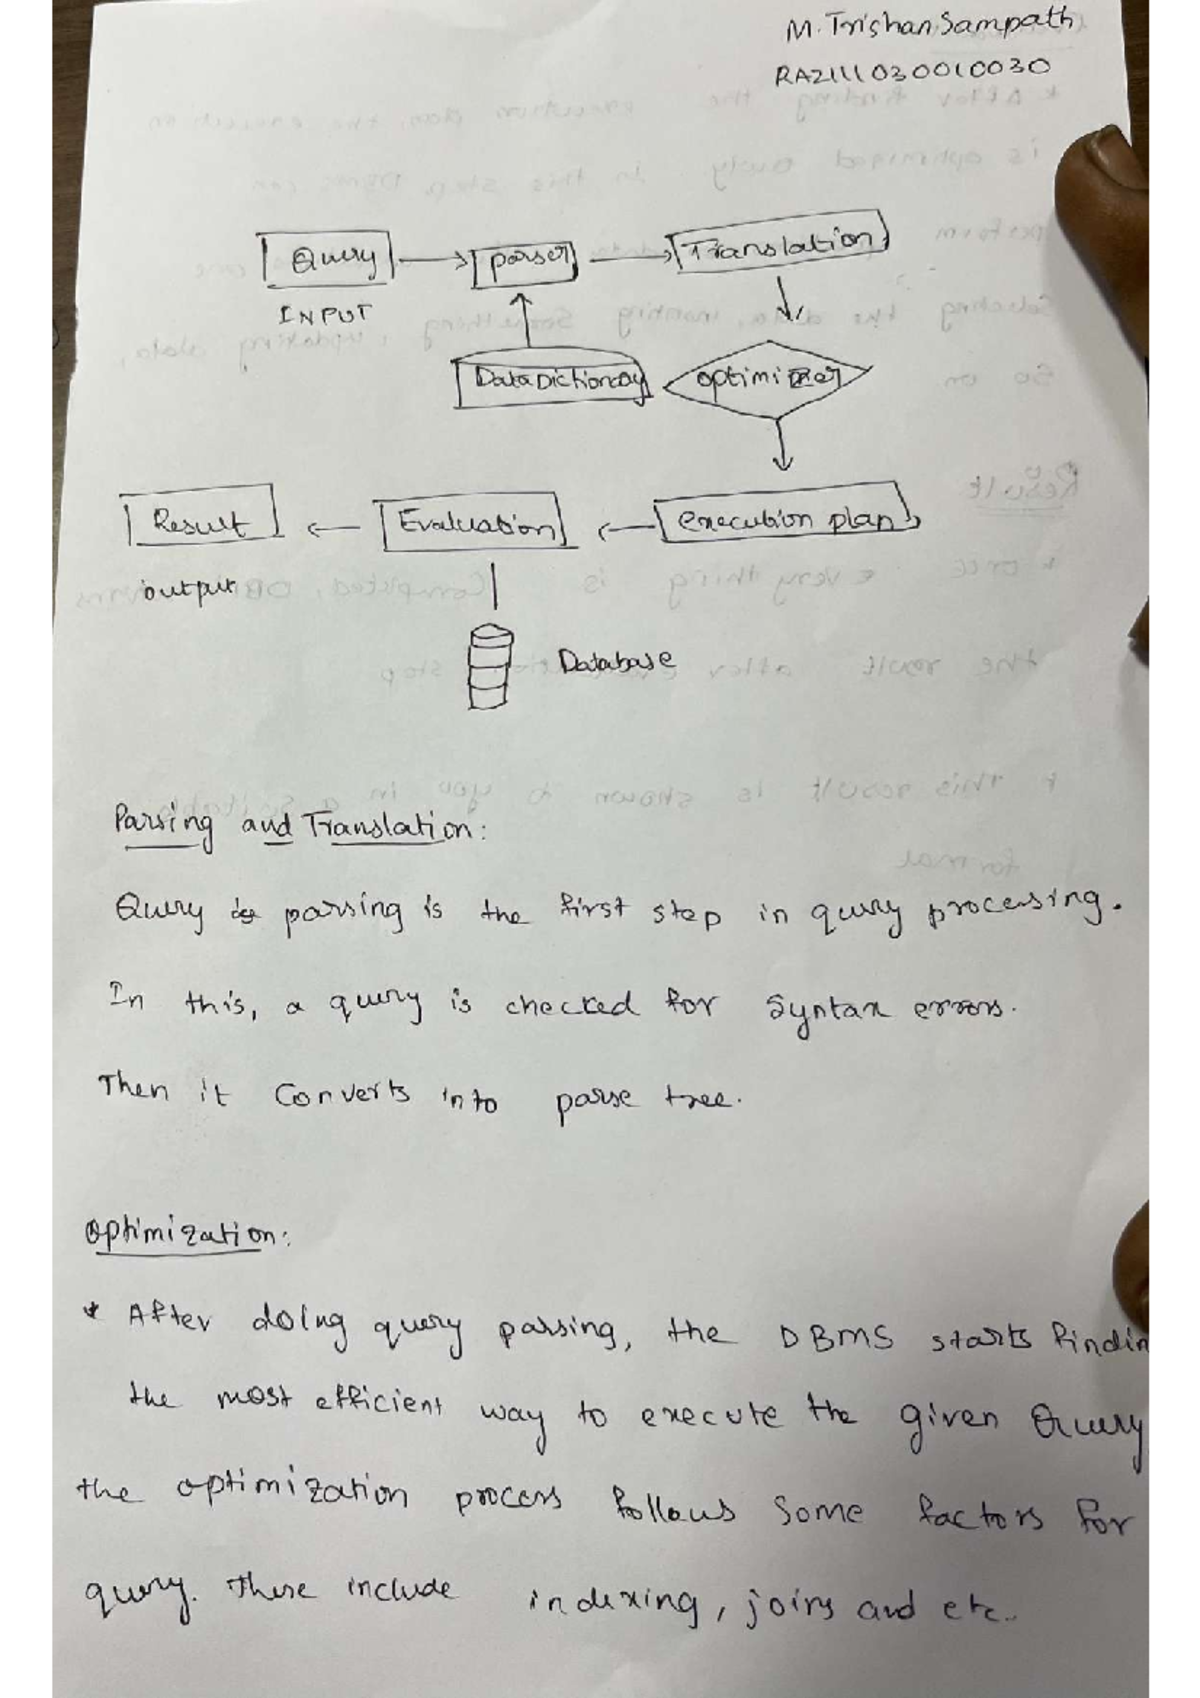 M. Trishan Sampath
RA2111030010030
Query
parser
Translation
INPUT
Data Dictionary
optimizer
Result
Evaluation
execution plan
output
Database
Parsing and Translation:
Query parsing is the first step in query processing.
In this, a query is checked for Syntax errors.
Then it Converts into parse tree.
Optimization:
* After doing query parsing, the DBMS starts findin
the most efficient way to execute the given Query
the optimization process follows Some factors for
query. These include indexing, joins and etc..